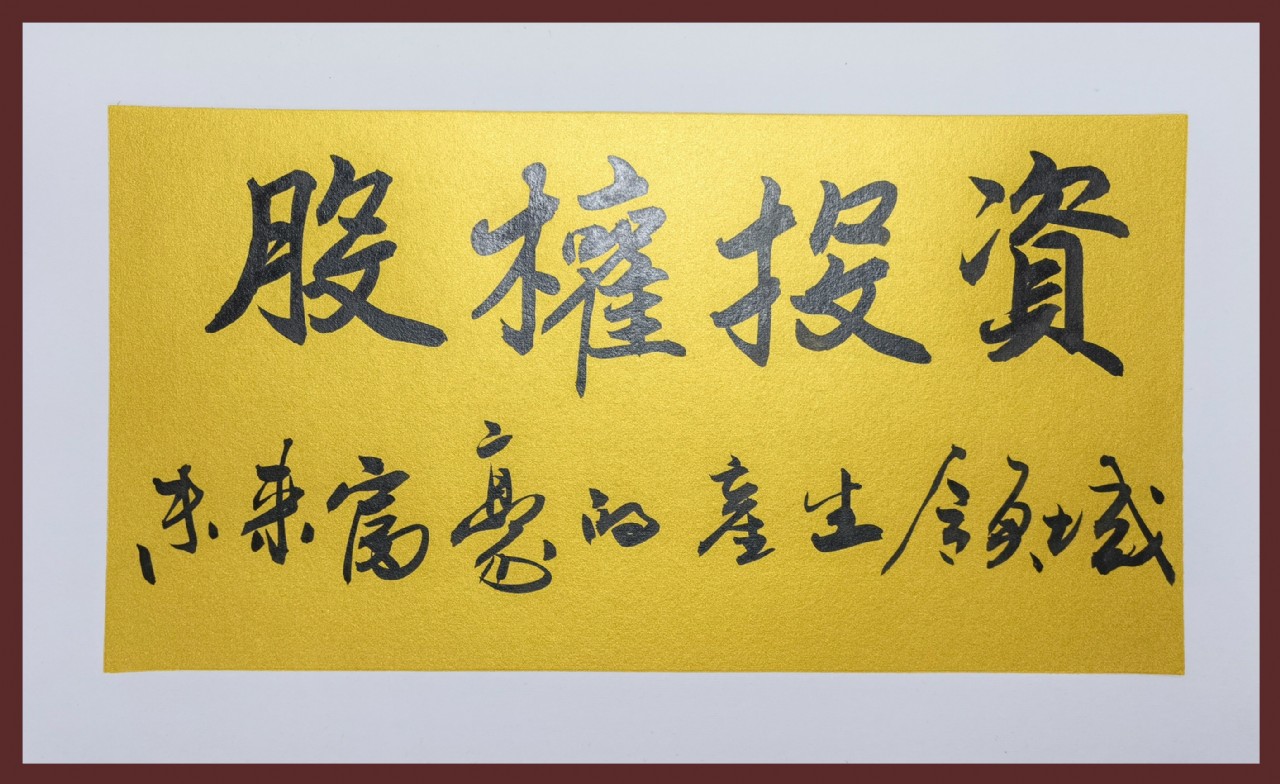 股權投資
未来富豪的產生領域